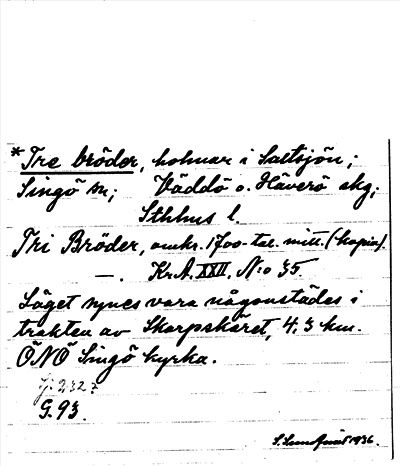 *Tre bröder, holmar i Saltsjön;
Singö sn; Väddö o. Häverö skg;
Sthlms l.
Tri Bröder, omkr. 1700-tal. mitt. (kopia).
—. Kr. A. XXII, N:o 35.
Läget synes vara någonstädes i
trakten av Skarpskäret, 4.3 km.
ÖNÖ Singö kyrka.
J: 232?
G. 93.
1936.